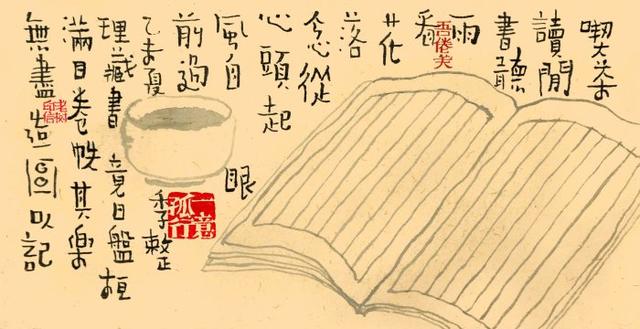 喫茶
讀閒
書聽
雨
看
花
落
念從
心頭起
風自眼
前過
乙未夏季整
理藏書竟日盤桓
滿目卷帙其樂
無盡造圖以記
一意孤行
老树印信